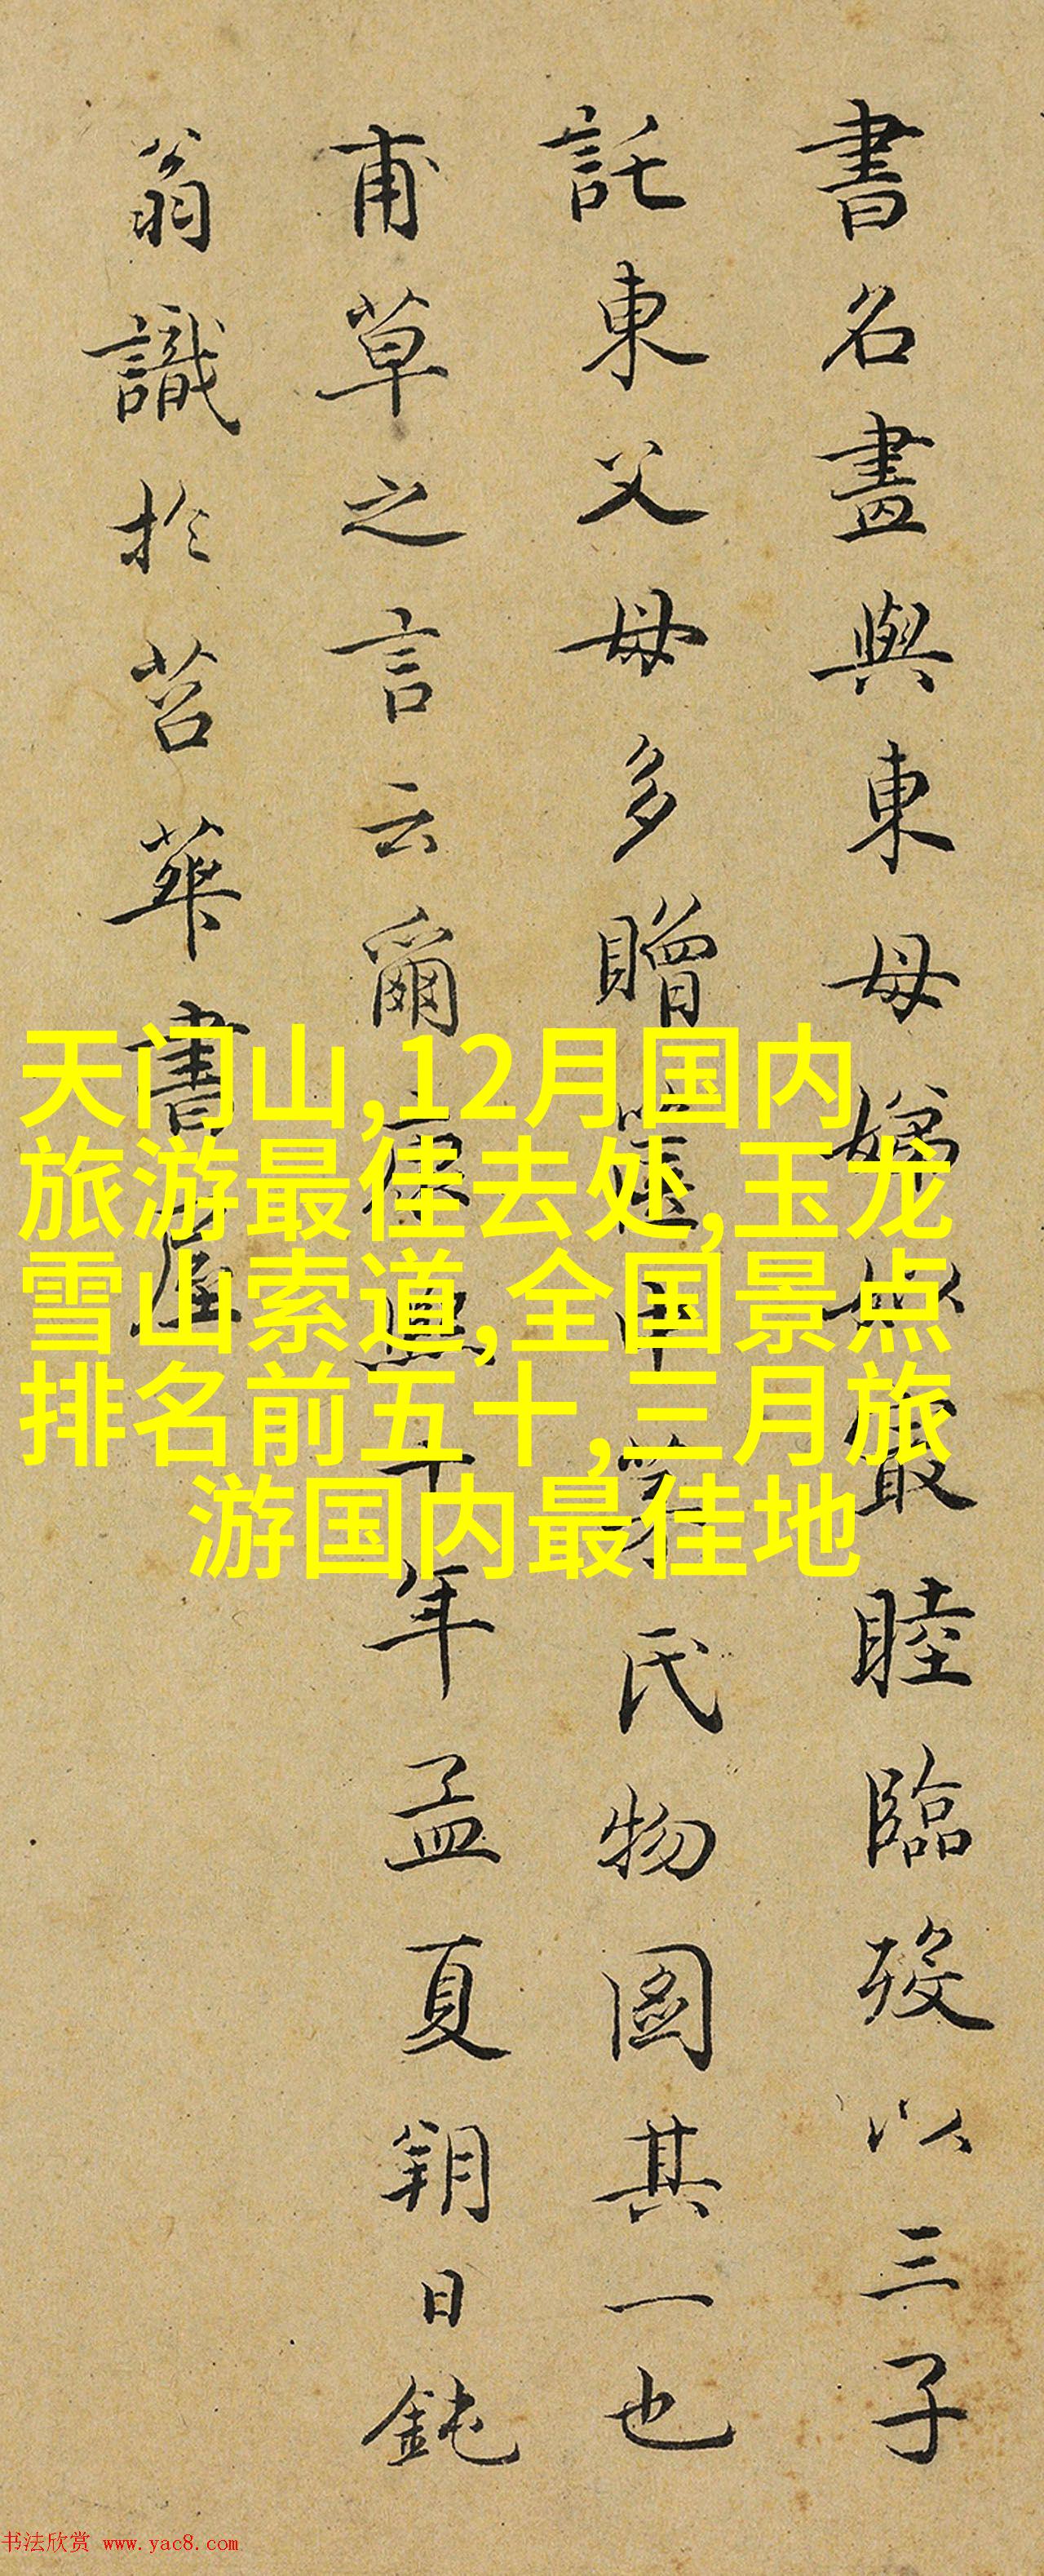 書名畫與東母娣姒最睦臨歿以三子
託東父母多贈遺氏物圖其一也
甫草之言云爾康熙十年孟夏朔日鈍
翁識於苕華書屋
天门山,12月国内
旅游最佳去处,玉龙
雪山索道,全国景点
排名前五十,三月旅
游国内最佳地
书法欣赏 www.yac8.com